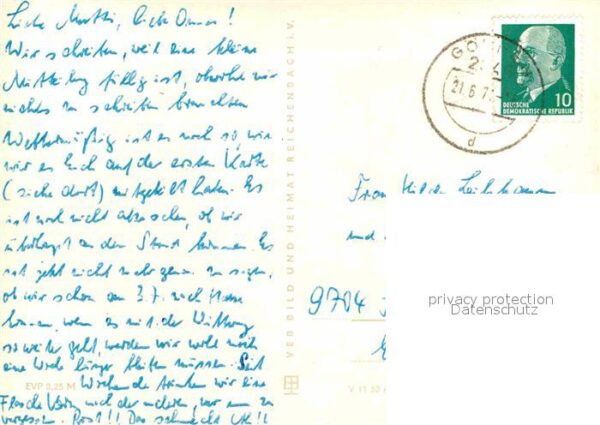 Liebe Mutti, liebe Omas!
Wir schreiben, weil eine kleine
Mitteilung fällig ist, obwohl wir
nichts zu schreiben brauchten
Wettermäßig ist es noch so, wie
wir es Euch auf der ersten Karte
(siehe dort) mitgeteilt haben. Es
ist noch nicht abzusehen, ob wir
überhaupt an den Strand können. Es
ist jetzt nicht mehr genau zu sagen,
ob wir schon am 3.7. nach Hause
kommen, wenn es mit der Witterung
so weiter geht, werden wir wohl noch
eine Woche länger bleiben müssen. Seit
Wochen trinken wir eine
Flasche nach der anderen, nur um zu
vergessen. Prost!! Das schmeckt !!
EVP 0,25 M
VEB BILD UND HEIMAT REICHENBACH i. V.
V 11 50
21.6.7
d
DEUTSCHE
DEMOKRATISCHE REPUBLIK
10
Frau
und
9704
privacy protection
Datenschutz